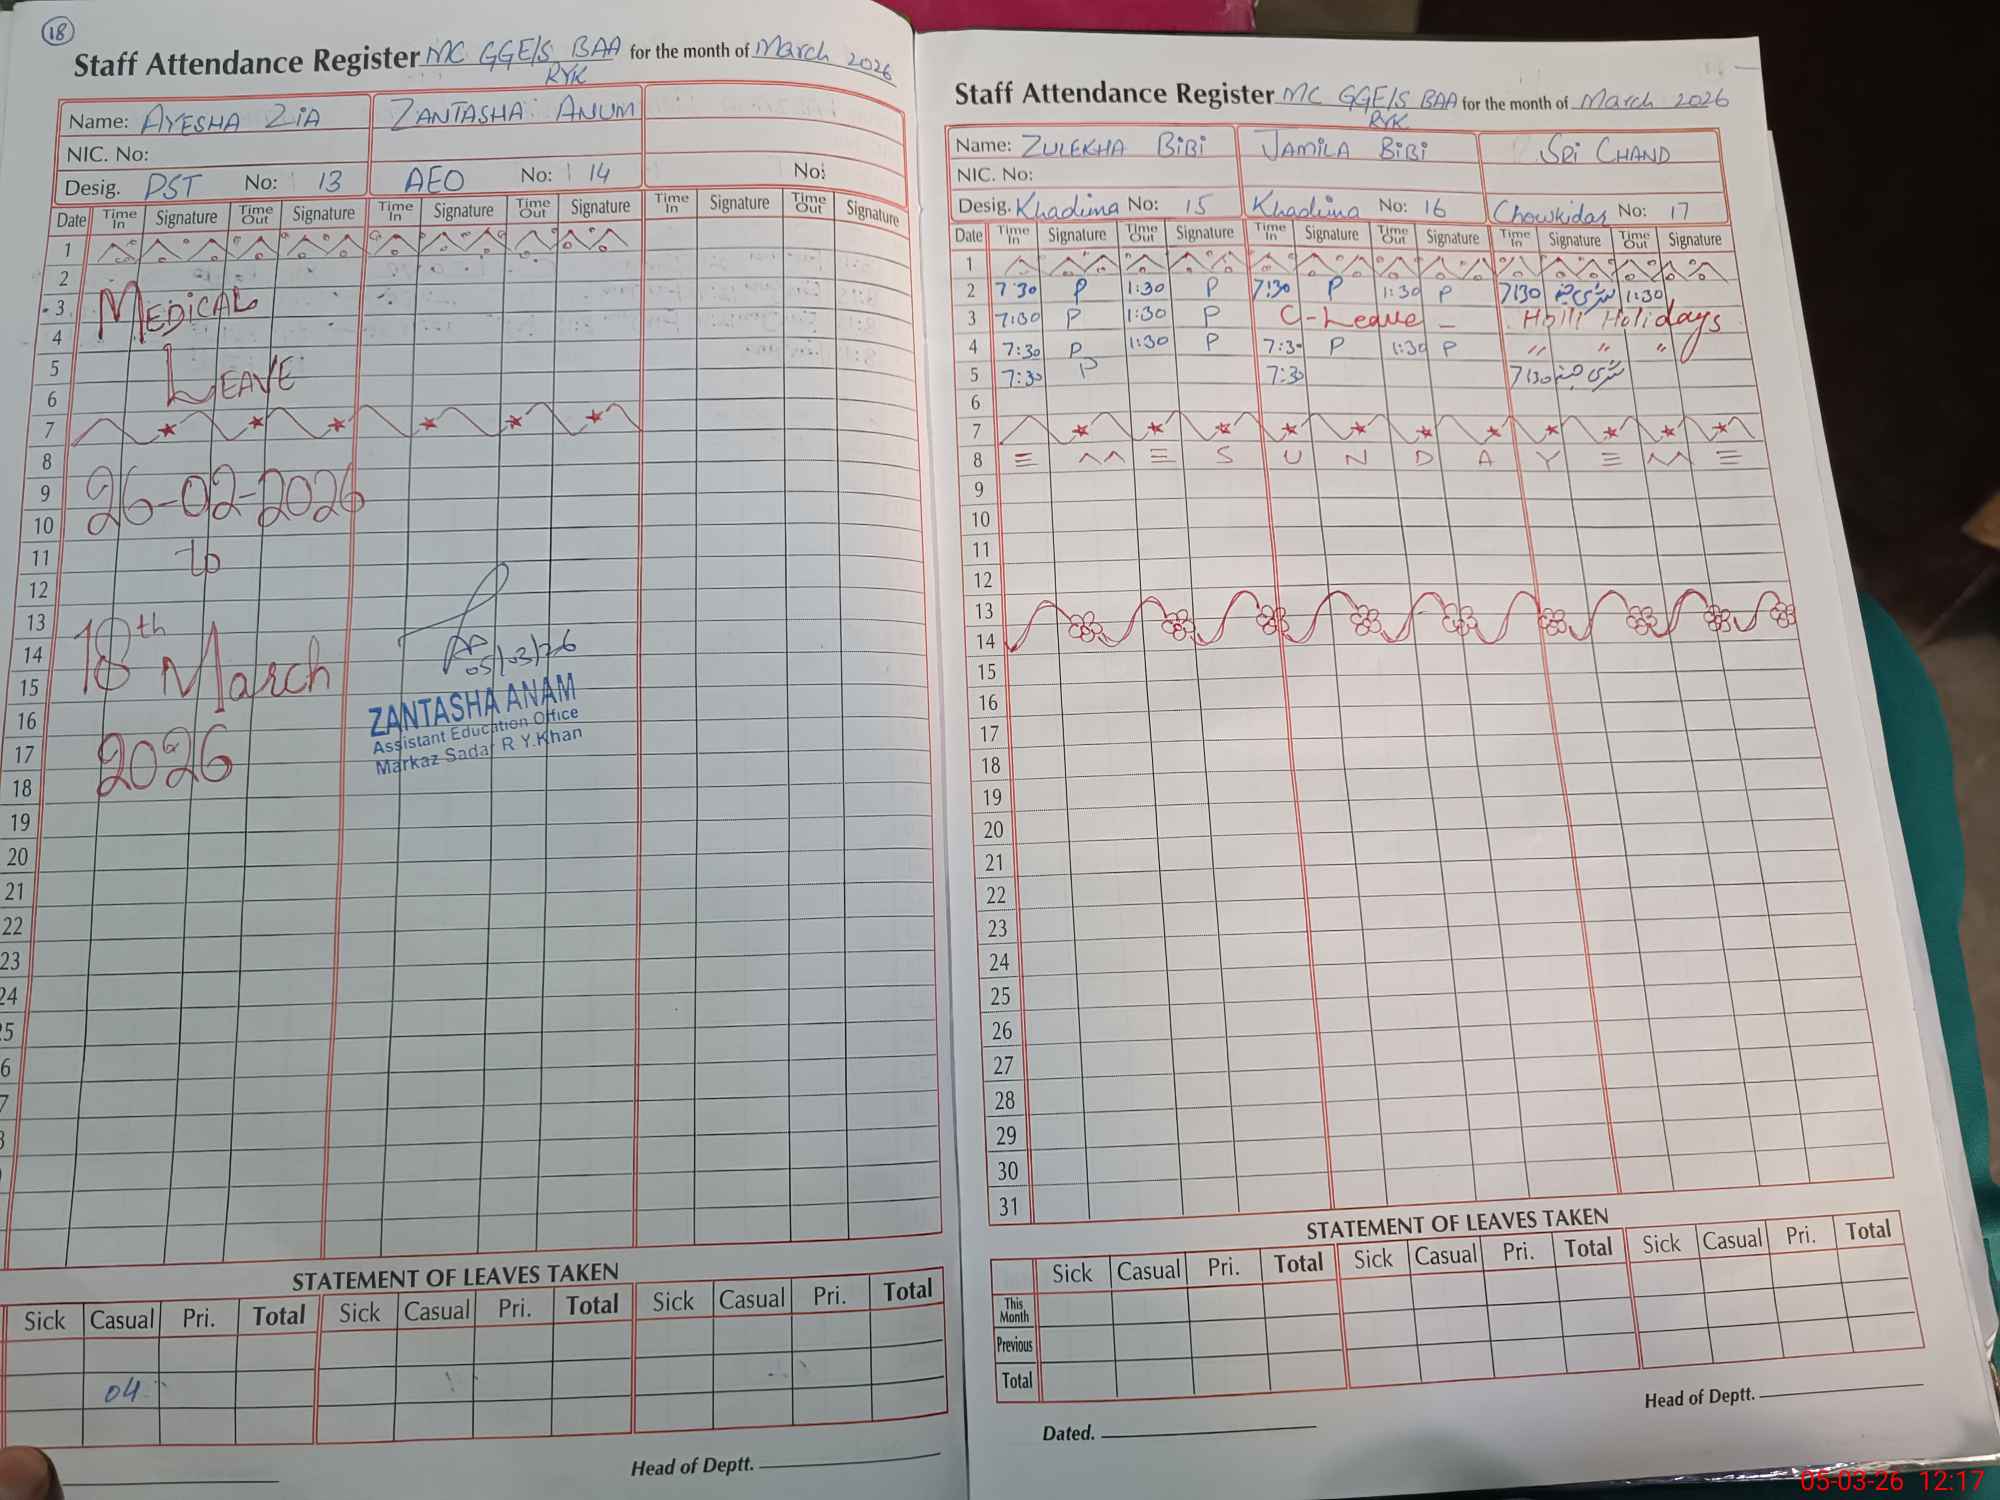 18
Staff Attendance Register MC GGE/S BAA RYK for the month of March 2026
Name: AYESHA ZIA ZANTASHA ANUM
NIC. No:
Desig. PST No: 13 AEO No: 14 No:
Date Time In Signature Time Out Signature Time In Signature Time Out Signature Time In Signature Time Out Signature
1
2
3 MEDICAL
4
5 LEAVE
6
7
8
9 26-02-2026
10
11 to
12
13
14 18th March
05/03/26
15
ZANTASHA ANAM
16
Assistant Education Office
17 2026
Markaz Sadar R.Y.Khan
18
19
20
21
22
23
24
25
6
7
8
STATEMENT OF LEAVES TAKEN
Sick Casual Pri. Total Sick Casual Pri. Total Sick Casual Pri. Total
04
Head of Deptt.
Staff Attendance Register MC GGE/S BAA RYK for the month of March 2026
Name: ZULEKHA BIBI JAMILA BIBI SRI CHAND
NIC. No:
Desig. Khadima No: 15 Khadima No: 16 Chowkidar No: 17
Date Time In Signature Time Out Signature Time In Signature Time Out Signature Time In Signature Time Out Signature
1
2 7:30 P 1:30 P 7:30 P 1:30 P 7:30 1:30
3 7:30 P 1:30 P C-Leave Holli Holidays
4 7:30 P 1:30 P 7:30 P 1:30 P " " "
5 7:30 P 7:30 7:30
6
7
8 S U N D A Y
9
10
11
12
13
14
15
16
17
18
19
20
21
22
23
24
25
26
27
28
29
30
31
STATEMENT OF LEAVES TAKEN
Sick Casual Pri. Total Sick Casual Pri. Total Sick Casual Pri. Total
This Month
Previous
Total
Head of Deptt.
Dated.
05-03-26 12:17